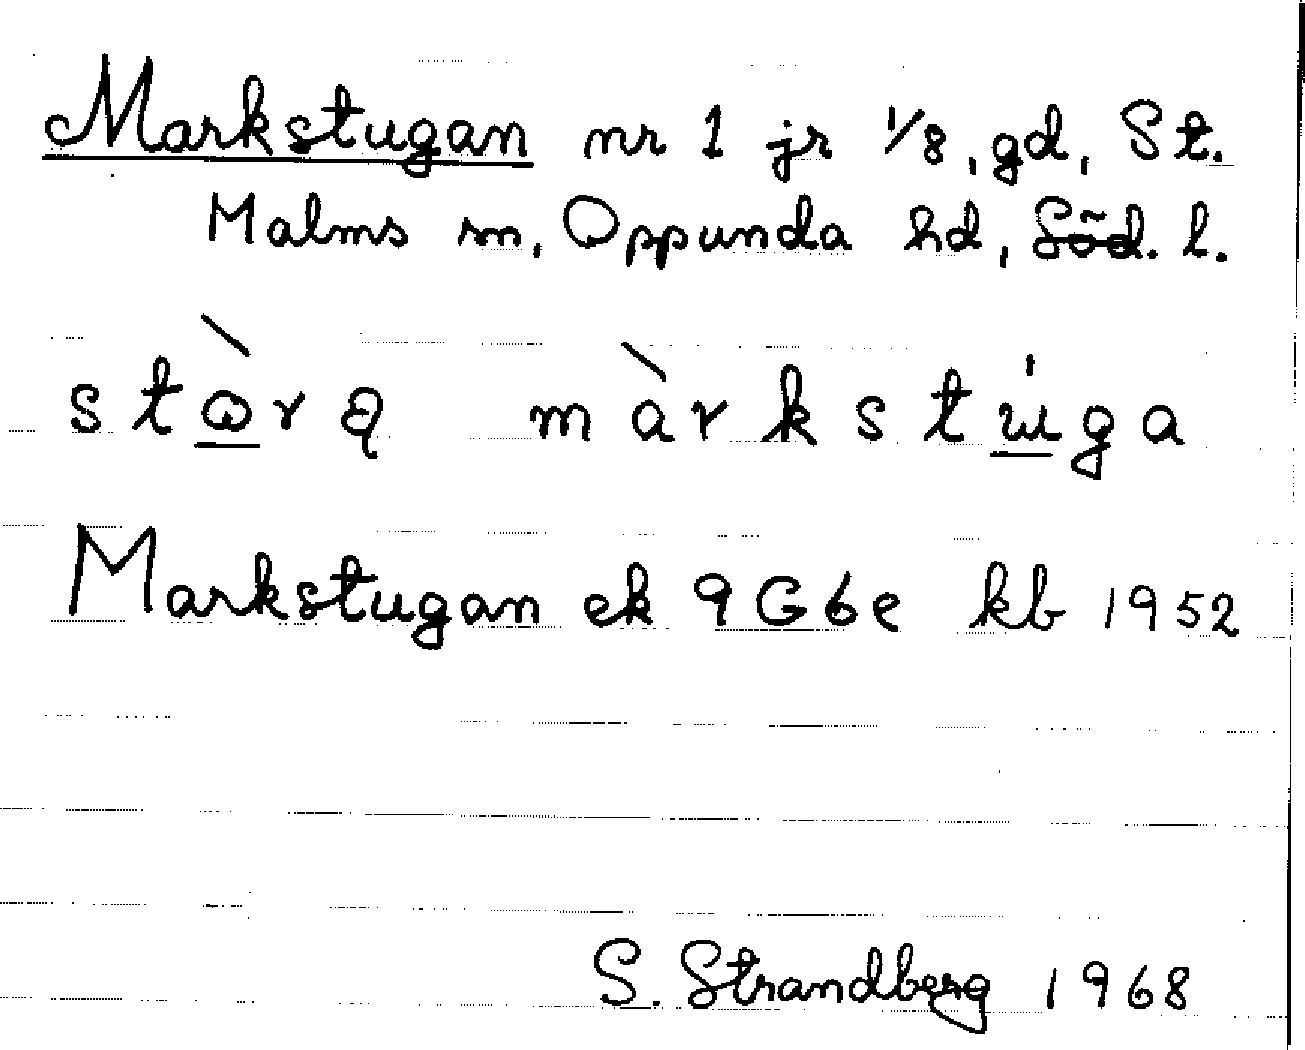 Markstugan nr 1 jr 1/8, gd, St.
Malms sn, Oppunda hd, Söd. l.
stὼrą màrkstɯ́ga
Markstugan ek 9G6e kb 1952
S. Strandberg 1968